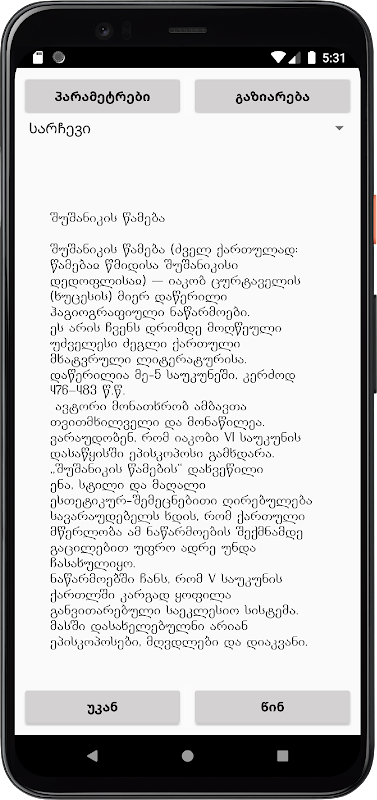 5:31
პარამეტრები
გაზიარება
სარჩევი
შუშანიკის წამება
შუშანიკის წამება (ძველ ქართულად:
წამებაჲ წმიდისა შუშანიკისი
დედოფლისაჲ) — იაკობ ცურტაველის
(ხუცესის) მიერ დაწერილი
ჰაგიოგრაფიული ნაწარმოები.
ეს არის ჩვენს დრომდე მოღწეული
უძველესი ძეგლი ქართული
მხატვრული ლიტერატურისა.
დაწერილია მე-5 საუკუნეში, კერძოდ
476–483 წ.წ.
ავტორი მონათხრობ ამბავთა
თვითმხილველი და მონაწილეა.
ვარაუდობენ, რომ იაკობი VI საუკუნის
დასაწყისში ეპისკოპოსი გამხდარა.
„შუშანიკის წამების“ დახვეწილი
ენა, სტილი და მაღალი
ესთეტიკურ-შემეცნებითი ღირებულება
სავარაუდებელს ხდის, რომ ქართული
მწერლობა ამ ნაწარმოების შექმნამდე
გაცილებით უფრო ადრე უნდა
ჩასახულიყო.
ნაწარმოებში ჩანს, რომ V საუკუნის
ქართლში კარგად ყოფილა
განვითარებული საეკლესიო სისტემა.
მასში დასახელებულნი არიან
ეპისკოპოსები, მღვდლები და დიაკვანი.
უკან
წინ